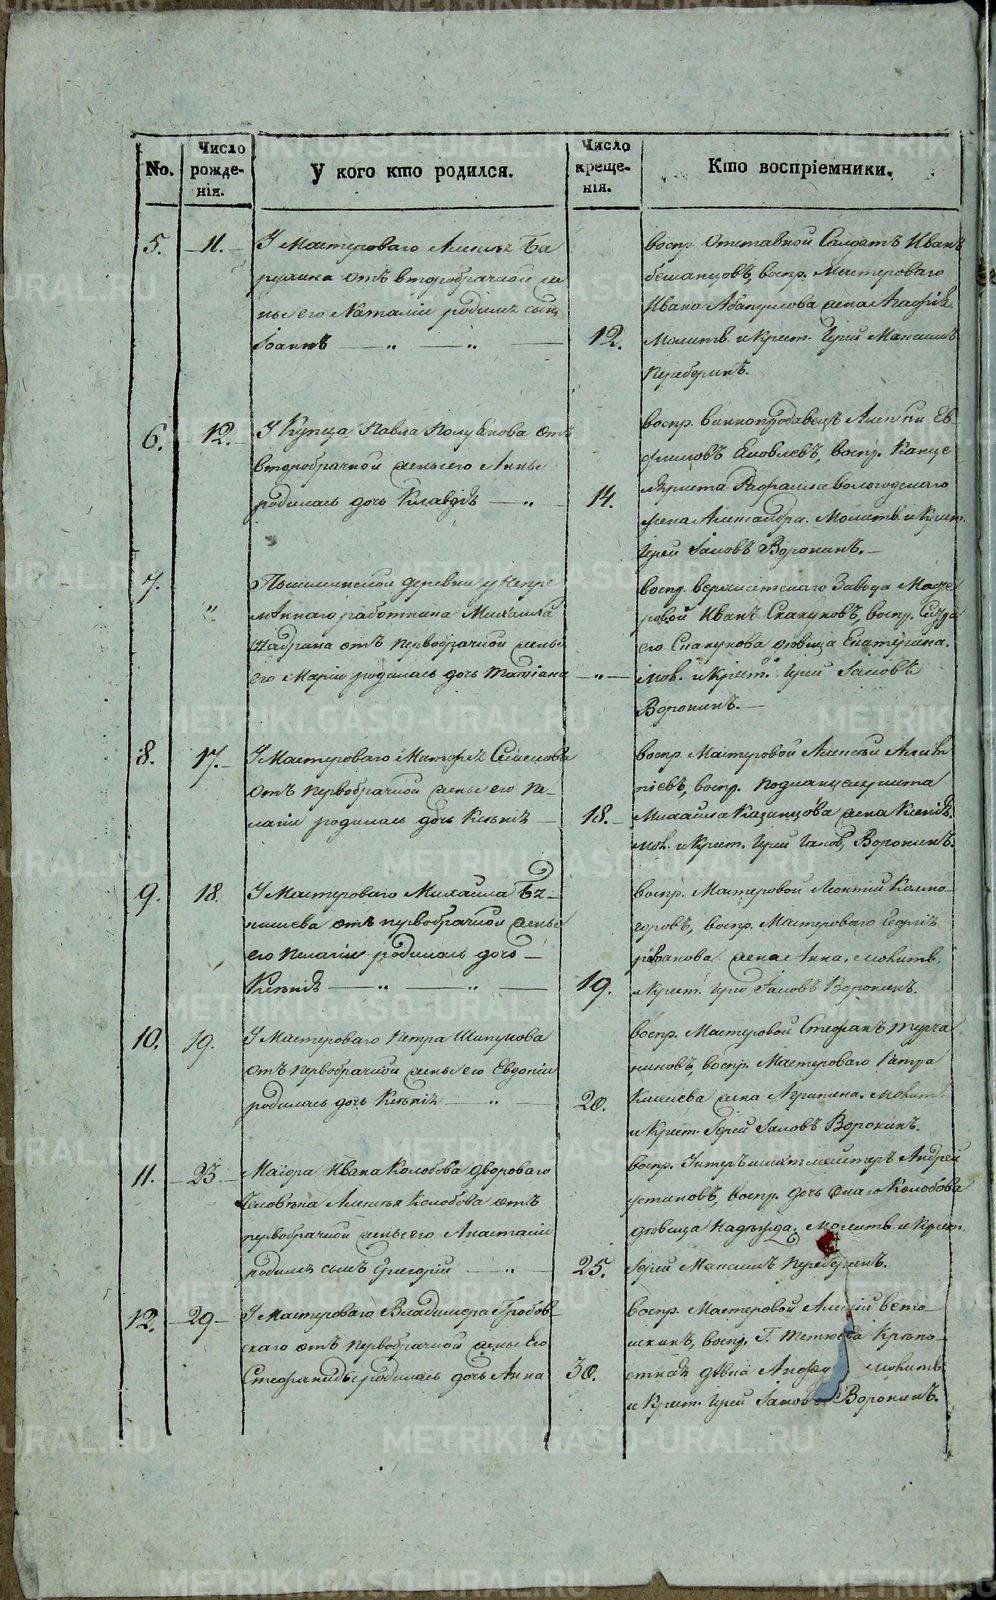 No.
Число рожде-
нія.
У кого кто родился.
Число
креще-
нія.
Кто воспріемники.
5. 11. У Мастероваго Алексѣя Ба
отъ второбрачной же
ны его Наталіи родился сынъ
Іоаннъ
12.
воспр. Отставной Солдатъ Иванъ
воспр. Мастероваго
Ивана жена Агафія
Молитв. и Крест. Іерей Максимъ
Переберинъ.
6. 12. У Купца Павла отъ
второбрачной жены его Анны
родилась дочь Клавдія
14.
воспр. винопродавецъ Алексѣй Ев-
Яковлевъ, воспр. Канце
Рафаила Вологодскаго
жена Александра. Молитв. и Крест.
Іерей Іаковъ Воронинъ.
7. " Пышминской деревни у Непре
мѣннаго работника Михаила
Шадрина отъ первобрачной жены
его Маріи родилась дочь Татіана
"
воспр. Верхисетскаго Завода Масте
ровой Иванъ Скакуновъ, воспр.
его Скакунова дѣвица Екатерина.
Мов. и Крест. Іерей Іаковъ
Воронинъ.
8. 17. У Мастероваго Семенова
отъ первобрачной жены его Пе-
лагіи родилась дочь Ксенія
18.
воспр. Мастеровой Алексѣй
воспр.
Михаила Казанцова жена Ксенія.
мол. и Крест. Іерей Іаков. Воронинъ.
9. 18. У Мастероваго Михаила
отъ первобрачной жены
его Пелагіи родилась дочь
Ксенія
19.
воспр. Мастеровой Леонтій Колмо-
горовъ, воспр. Мастероваго Георгія
жена Анна. молитв.
и Крест. Іерей Іаковъ Воронинъ.
10. 19. У Мастероваго Петра Шипунова
отъ первобрачной жены его Евдокіи
родилась дочь Ксенія
20.
воспр. Мастеровой Стефанъ Турча
ниновъ, воспр. Мастероваго Петра
Киселева жена Агрипина. Молитв.
и Крест. Іерей Іаковъ Воронинъ.
11. 23. Маіора Ивана Колобова двороваго
человѣка Алексѣя Колобова отъ
первобрачной жены его Анастасіи
родился сынъ Григорій
25.
воспр. Андрей
Устиновъ, воспр. дочь онаго Колобова
дѣвица Надежда. Молитв. и Крест.
Іерей Максимъ Переберинъ.
12. 29 У Мастероваго Владимера Гробов
скаго отъ первобрачной жены его
Стефаниды родилась дочь Анна
30.
воспр. Мастеровой Алексѣй Вето-
шкинъ, воспр. Г. Крѣпо-
стная дѣвка молитв.
и Крест. Іерей Іаковъ Воронинъ.
METRIKI.GASO-URAL.RU